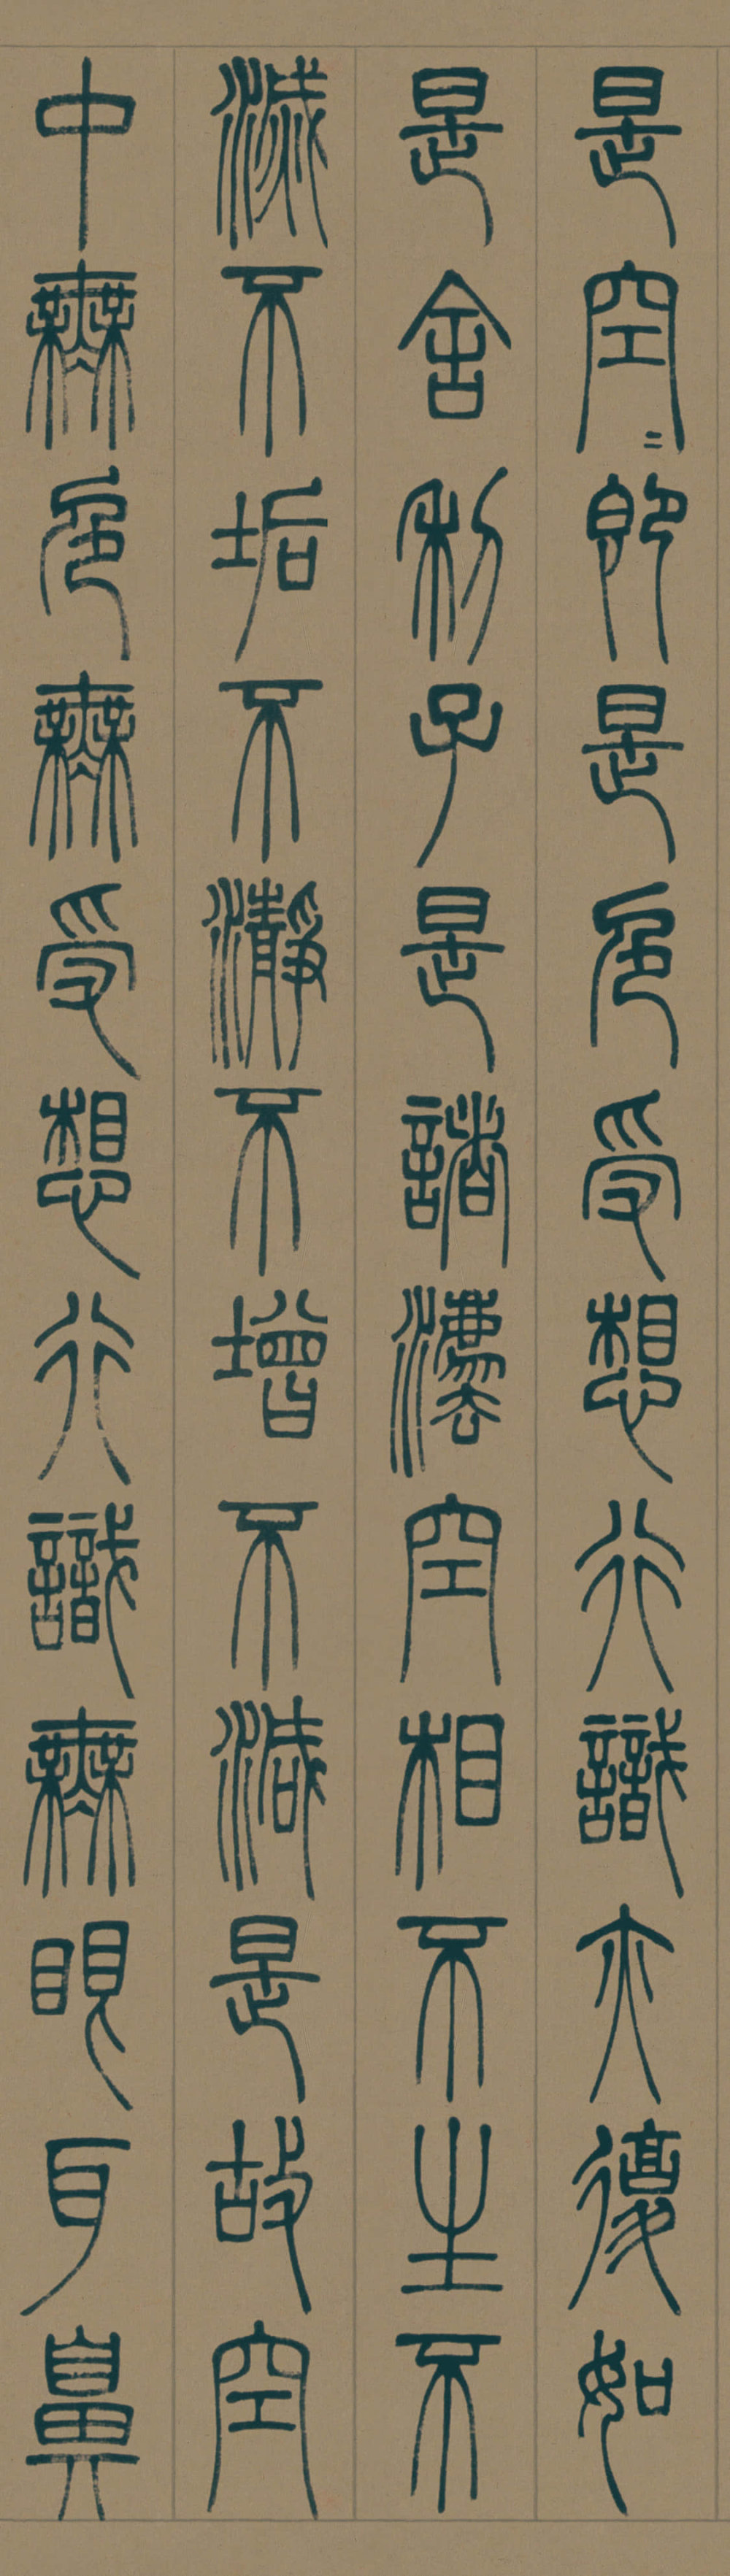 是空〻即是色受想行識亦復如
是舍利子是諸灋空相不生不
滅不垢不瀞不增不減是故空
中無色無受想行識無眼耳鼻